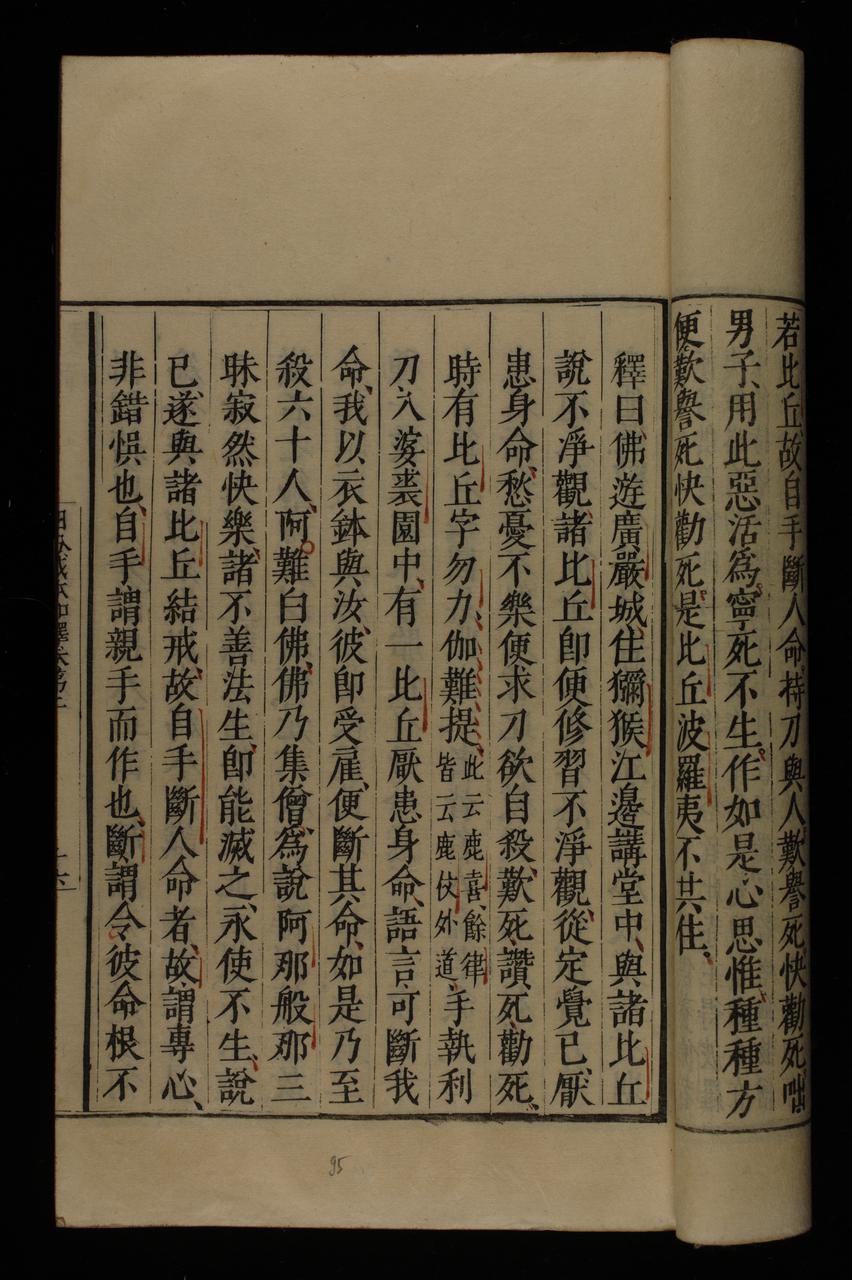 若比丘故自手斷人命持刀與人歎譽死快勸死咄
男子用此惡活爲寧死不生作如是心思惟種種方
便歎譽死快勸死是比丘波羅夷不共住
釋曰佛遊廣嚴城住獼猴江邊講堂中與諸比丘
說不淨觀諸比丘卽便修習不淨觀從定覺已厭
患身命愁憂不樂便求刀欲自殺歎死讚死勸死
時有比丘字勿力伽難提此云鹿喜餘律皆云鹿仗外道手執利
刀入婆裘園中有一比丘厭患身命語言可斷我
命我以衣鉢與汝彼卽受雇便斷其命如是乃至
殺六十人阿難白佛佛乃集僧爲說阿那般那三
昧寂然快樂諸不善法生卽能滅之永使不生說
已遂與諸比丘結戒故自手斷人命者故謂專心
非錯悞也自手謂親手而作也斷謂令彼命根不
95